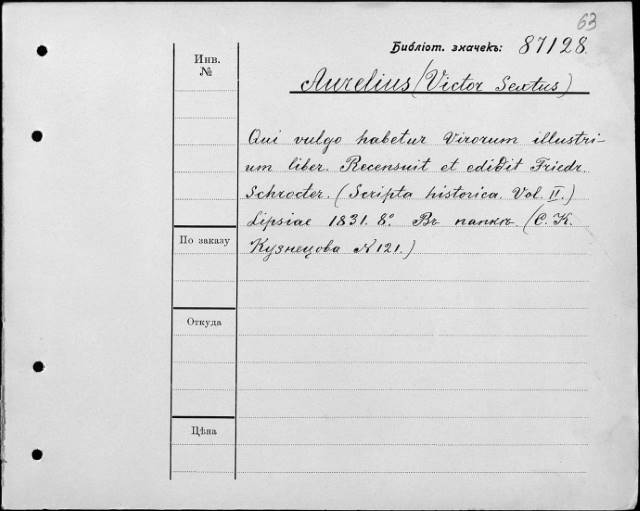 63
Библіот. значекъ: 87128.
Инв. №
Aurelius (Victor Sextus)
Qui vulgo habetur Virorum illustri-
um liber. Recensuit et edidit Friedr.
Schroeter. (Scripta historica. Vol. II.)
Lipsiae 1831. 8°. Въ папкѣ (С. К.
Кузнецова N 121.)
По заказу
Откуда
Цѣна